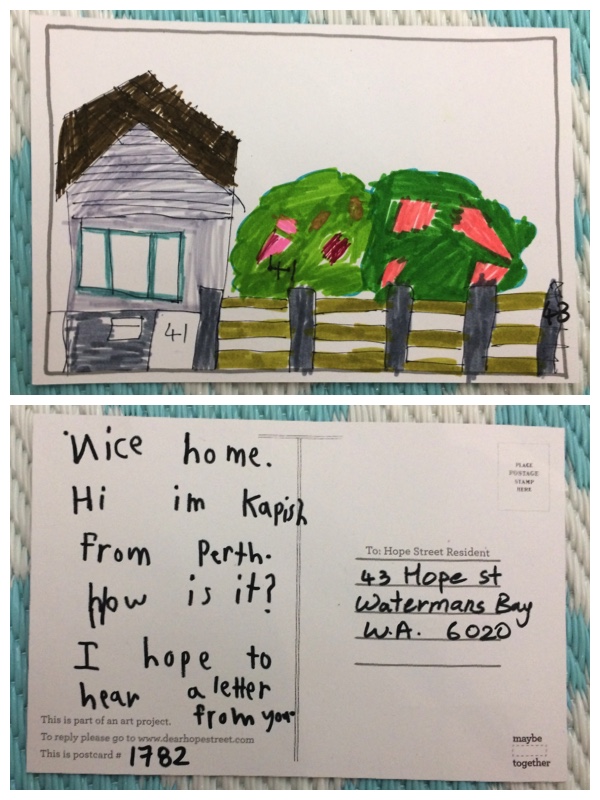 41
41
43
Nice home.
Hi im Kapish
From Perth.
How is it?
I hope to
hear a letter
from you
This is part of an art project.
To reply please go to www.dearhopestreet.com
This is postcard # 1782
PLACE
POSTAGE
STAMP
HERE
To: Hope Street Resident
43 Hope st
Watermans Bay
W.A. 6020
maybe
together